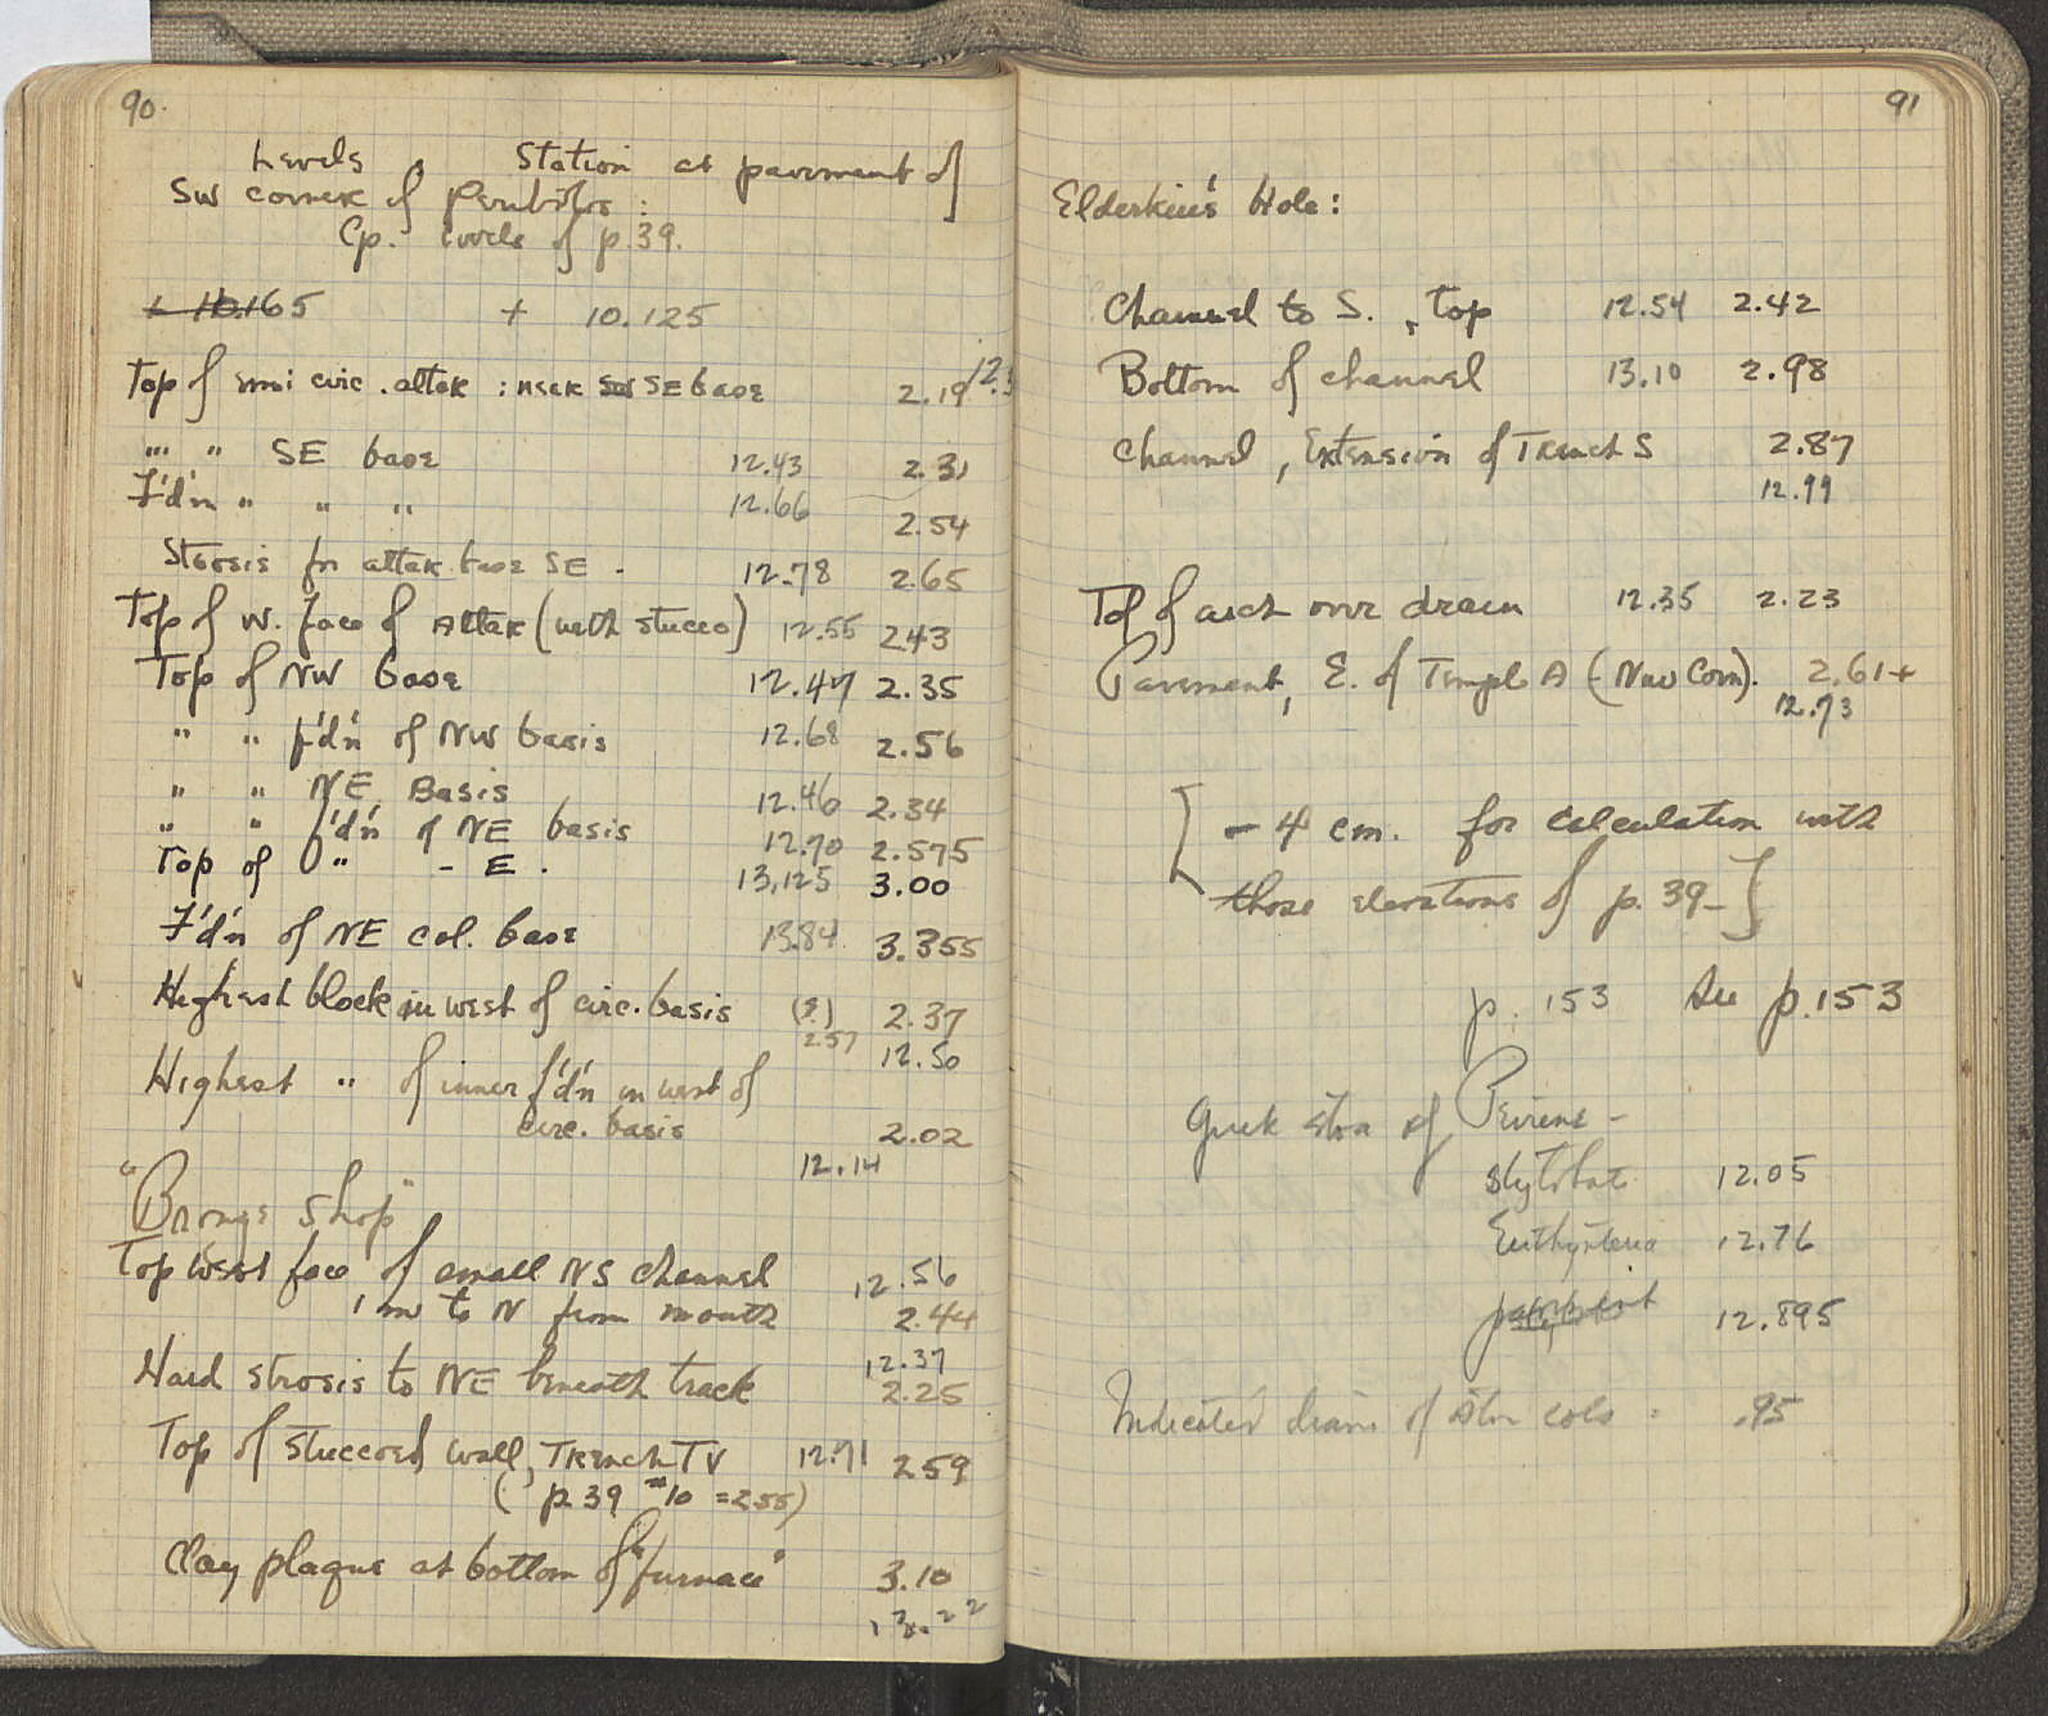 90.
Levels Station at pavement of
SW corner of Peribolos :
Cp. levels of p.39.
+ 10.165 + 10.125
Top of semi circ. altar : near SE base 2.19 12.3
" " SE base 12.43 2.31
F'd'n " " " 12.66 2.54
Sterosis for altar base SE . 12.78 2.65
Top of W. face of Altar (with stucco) 12.55 2.43
Top of NW base 12.47 2.35
" " f'd'n of NW basis 12.68 2.56
" " NE Basis 12.46 2.34
" " f'd'n of NE basis 12.70 2.575
Top of " - E . 13.125 3.00
F'd'n of NE col. base 13.84 3.355
Highest block in west of circ. basis (?) 2.37
2.57 12.50
Highest " of inner f'd'n in west of
circ. basis 2.02
12.14
"Bronze Shop"
Top West face of small NS channel 12.56
1 m to N from mouth 2.44
12.37
Hard strosis to NE beneath track 2.25
Top of stuccoed wall, Trench TV 12.71 2.59
( p 39 - 10 = 2.55)
Clay plaque at bottom of "furnace" 3.10
13.22
91
Elderkin's Hole:
Channel to S. , top 12.54 2.42
Bottom of channel 13.10 2.98
Channel, Extension of Trench S 2.87
12.99
Top of arch over drain 12.35 2.23
Pavement, E. of Temple A (NW Corn). 2.61+
12.73
[ - 4 cm. for calculation with
those elevations of p. 39 - ]
p. 153 See p. 153
Greek stoa of Peirene -
Stylobate 12.05
Euthynteria 12.76
12.895
Indicated diam of stoa cols = .95